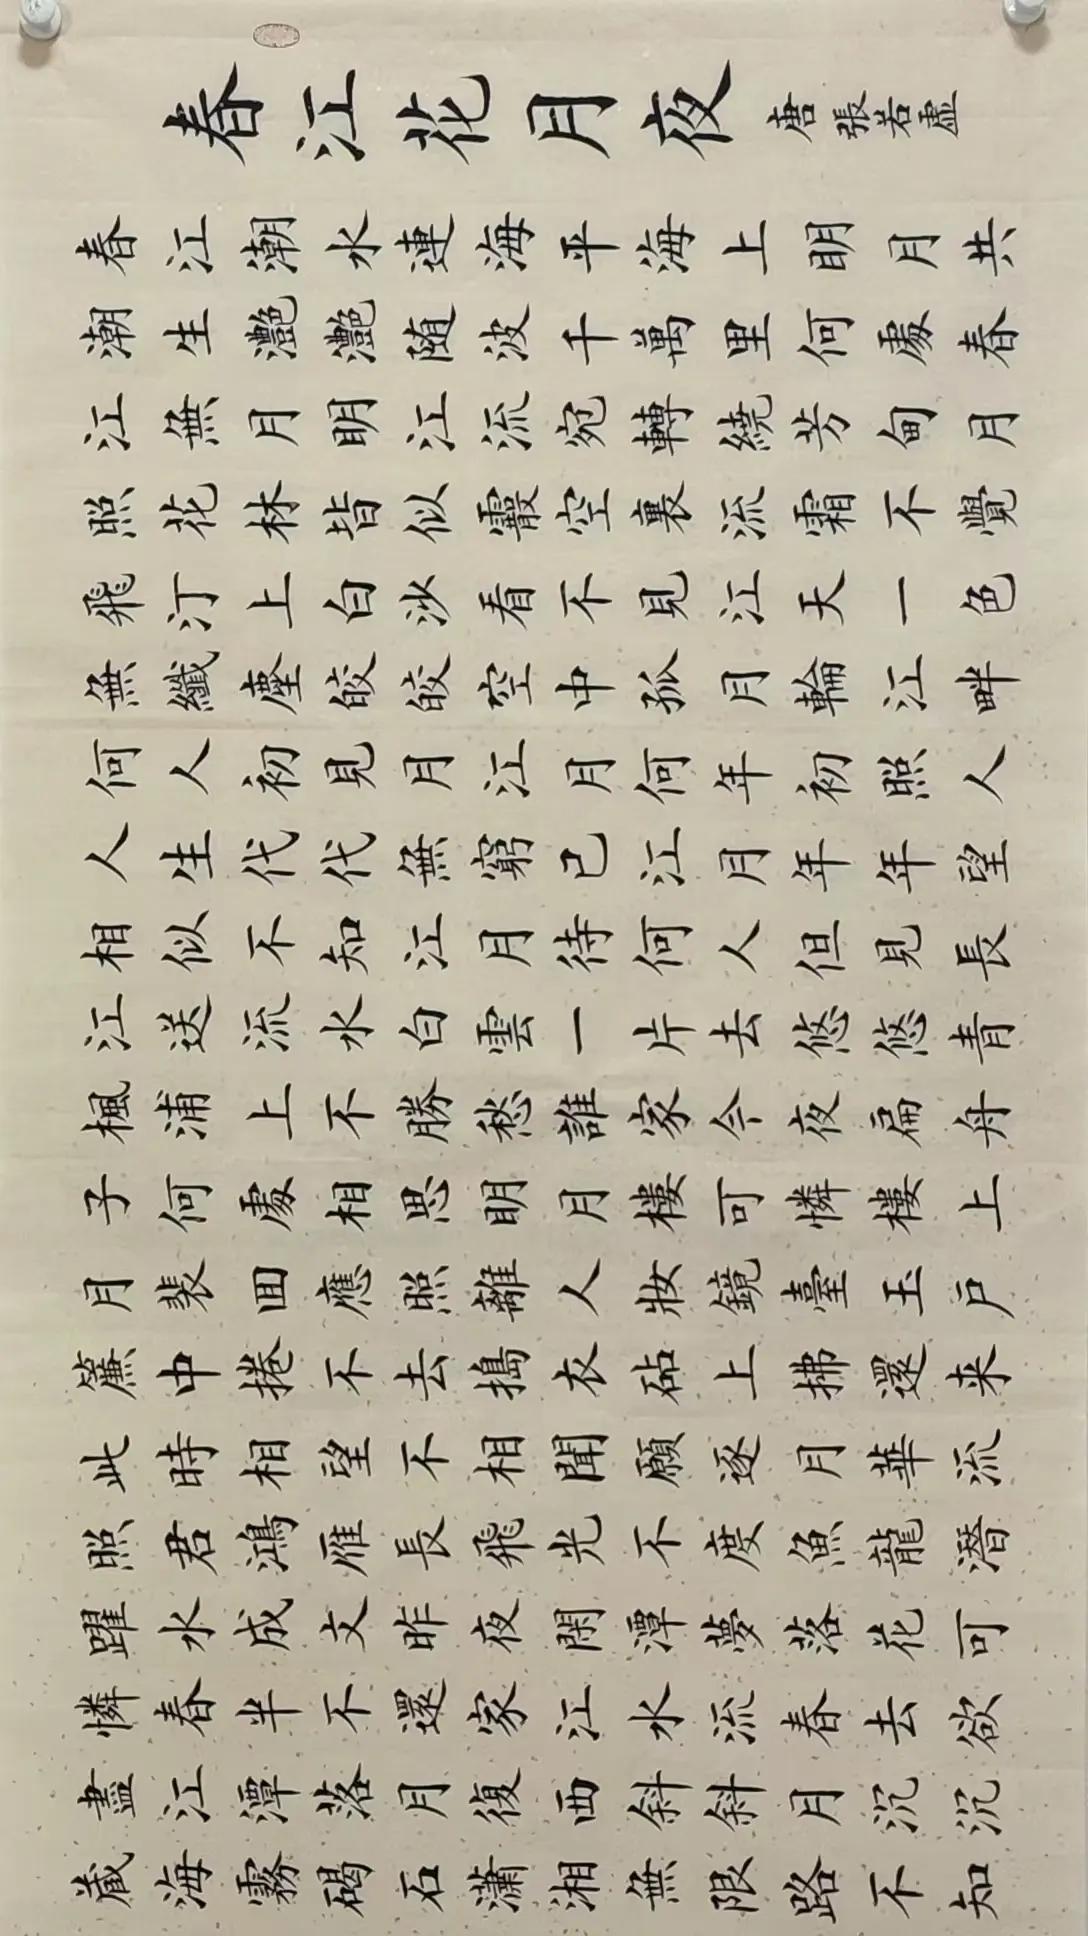 春江花月夜 唐 張若虛
春江潮水連海平海上明月共
潮生灩灩随波千萬里何處春
江無月明江流宛轉繞芳甸月
照花林皆似霰空裏流霜不覺
飛汀上白沙看不見江天一色
無纖塵皎皎空中孤月輪江畔
何人初見月江月何年初照人
人生代代無窮已江月年年望
相似不知江月待何人但見長
江送流水白雲一片去悠悠青
楓浦上不勝愁誰家今夜扁舟
子何處相思明月楼可憐楼上
月裴回應照離人妝鏡臺玉戶
簾中捲不去搗衣砧上拂還来
此時相望不相聞願逐月華流
照君鴻雁長飛光不度魚龍潛
躍水成文昨夜閑潭夢落花可
憐春半不還家江水流春去欲
盡江潭落月復西斜斜月沉沉
藏海霧碣石瀟湘無限路不知